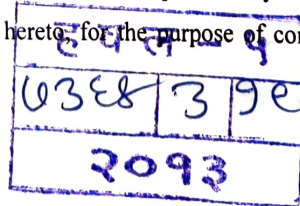 hereto, for the purpose of
हवल - ५
७३६४ ३ १९
२०१३